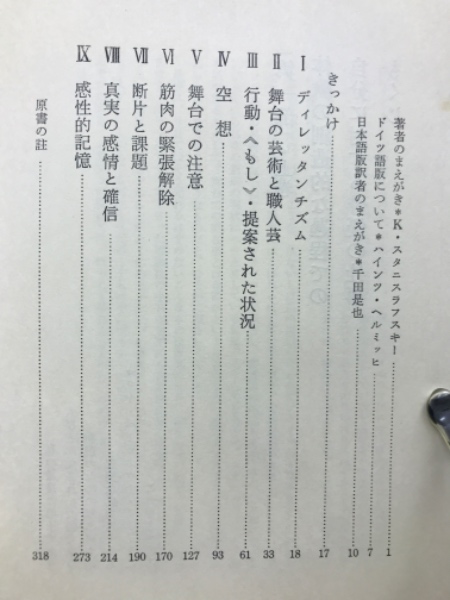 著者のまえがき*K・スタニスラフスキー……1
ドイツ語版について*ハインツ・ヘルミッヒ……7
日本語版訳者のまえがき*千田是也……10
きっかけ……17
Ⅰ ディレッタンチズム……18
Ⅱ 舞台の芸術と職人芸……33
Ⅲ 行動・《もし》・提案された状況……61
Ⅳ 空想……93
Ⅴ 舞台での注意……127
Ⅵ 筋肉の緊張解除……170
Ⅶ 断片と課題……190
Ⅷ 真実の感情と確信……214
Ⅸ 感性的記憶……273
原書の註……318